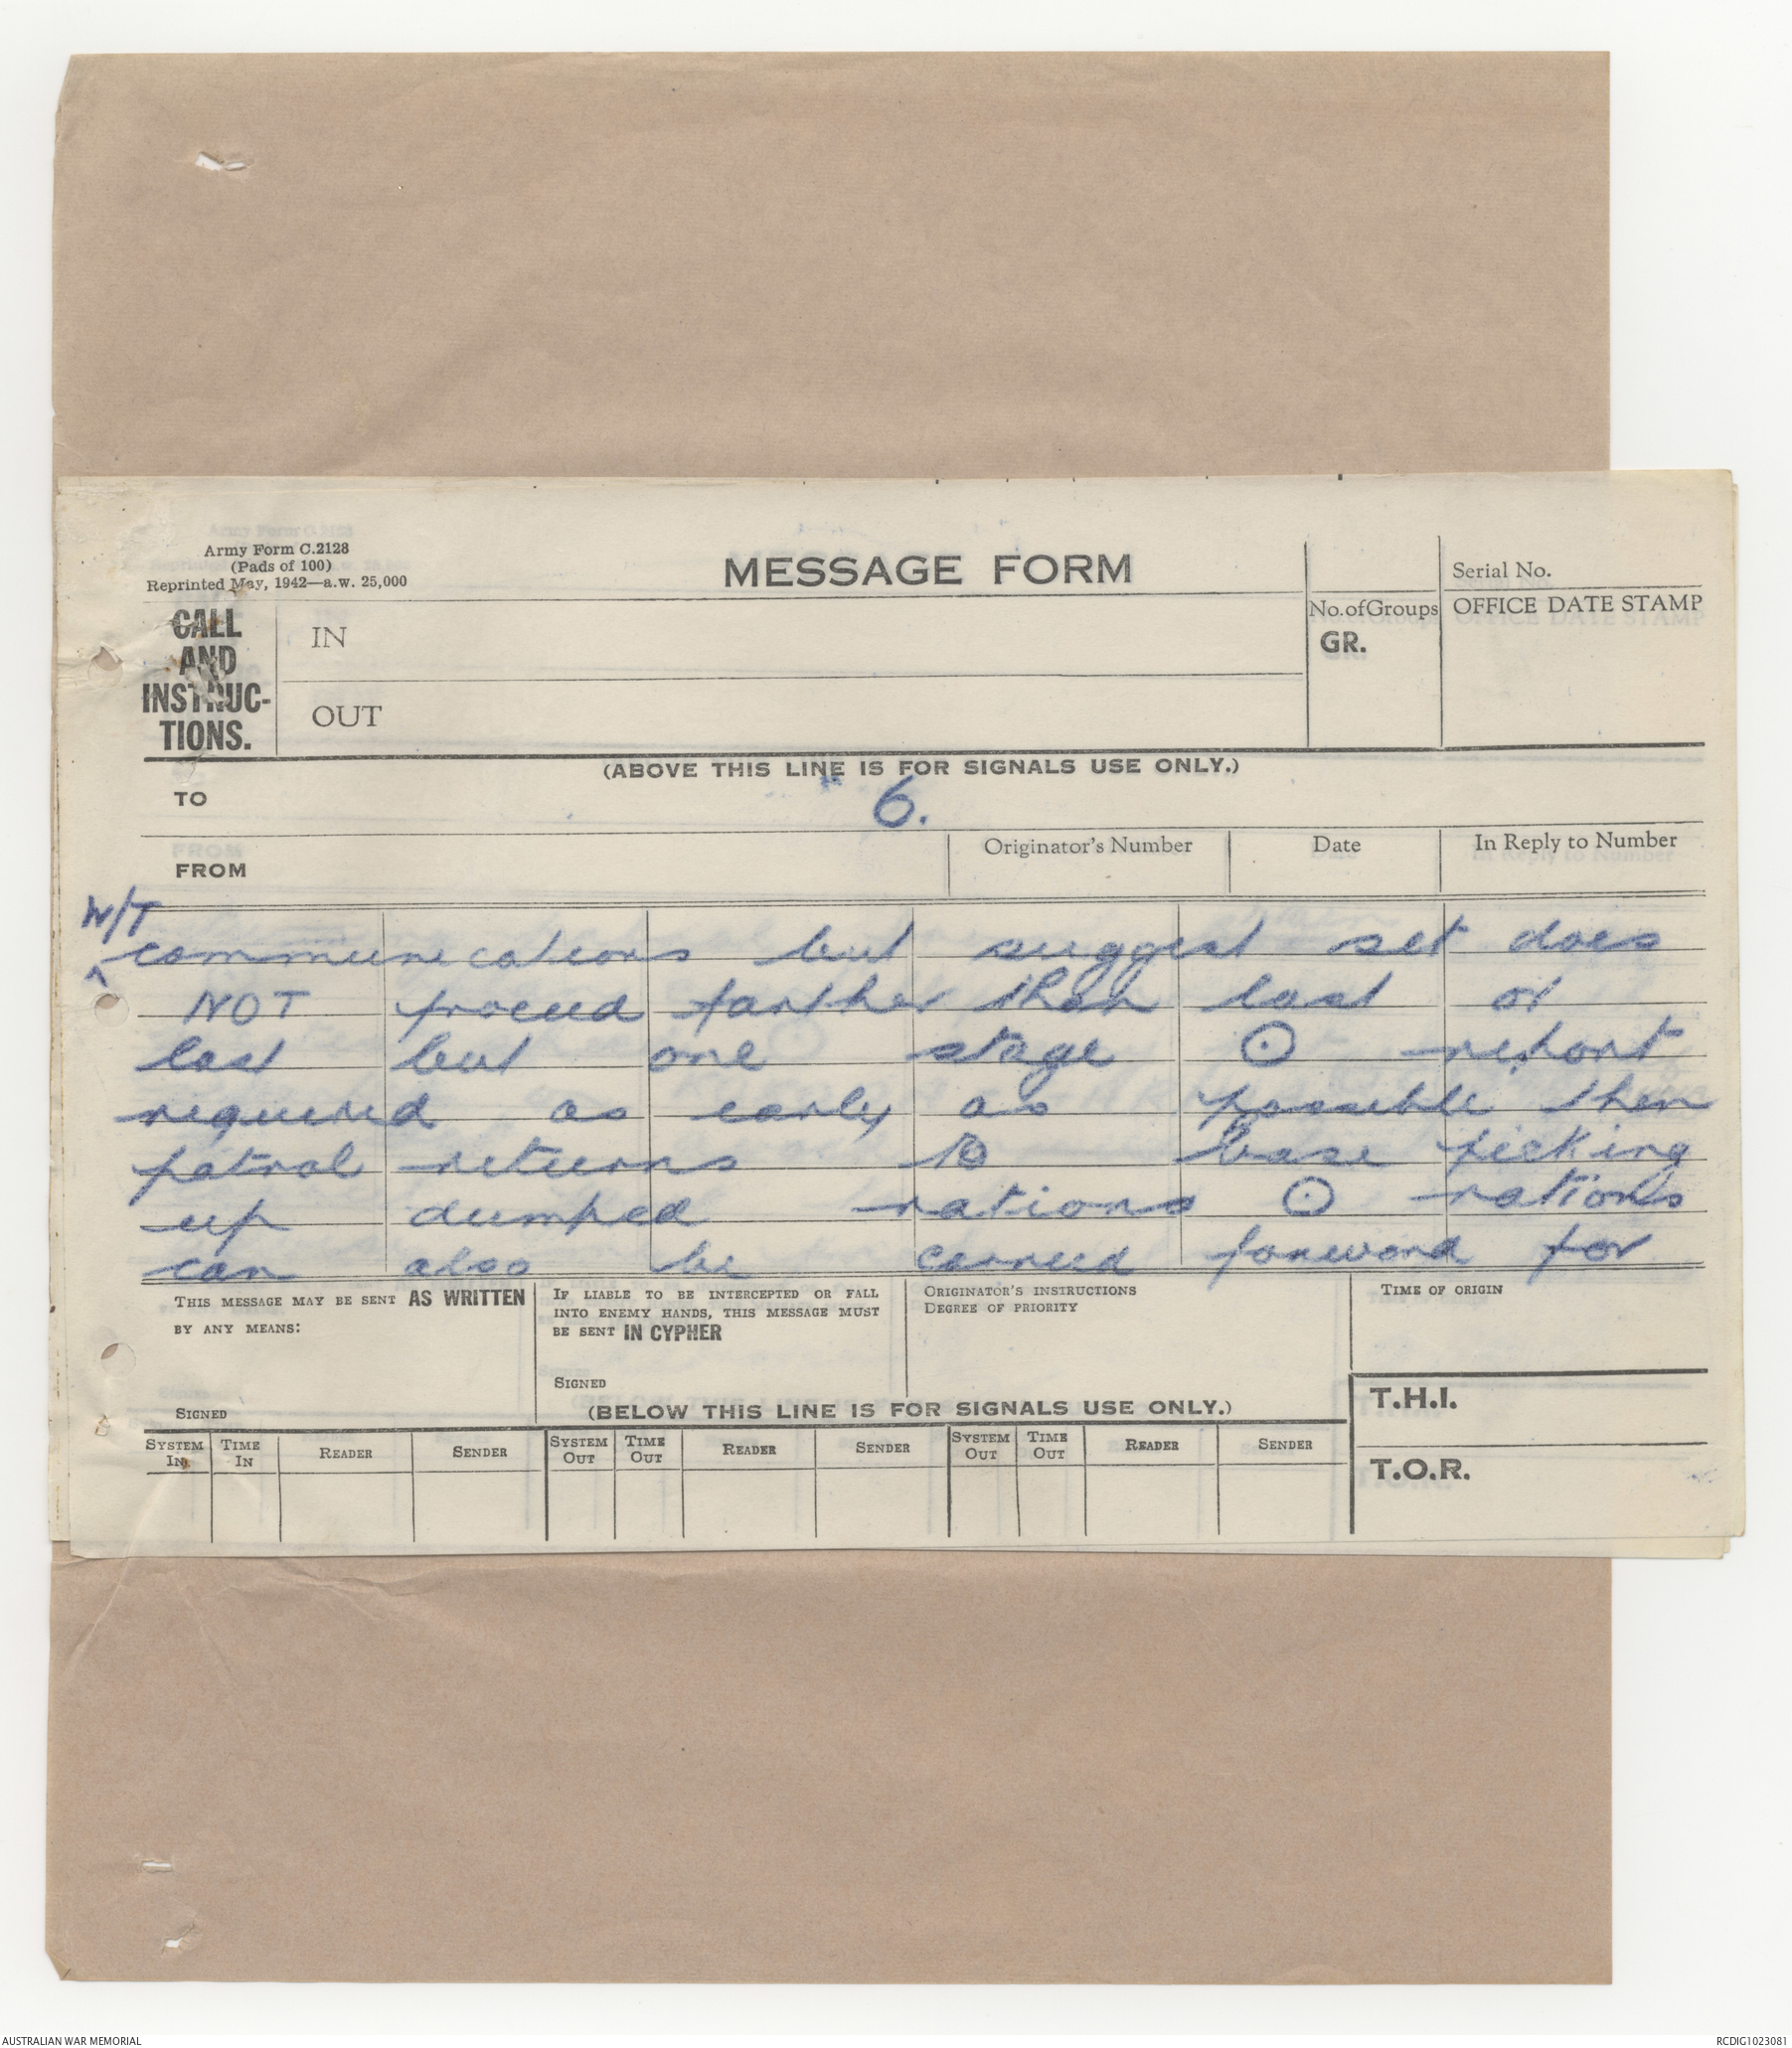 Army Form C.2128
(Pads of 100)
Reprinted May, 1942—a.w. 25,000
MESSAGE FORM
Serial No.
CALL
AND
INSTRUC-
TIONS.
IN
OUT
No. of Groups
GR.
OFFICE DATE STAMP
(ABOVE THIS LINE IS FOR SIGNALS USE ONLY.)
TO
6.
FROM
Originator's Number
Date
In Reply to Number
W/T
^ communications but suggest set does
NOT proceed farther than last or
last but one stage ⊙ report
required as early as possible then
patrol returns to base picking
up dumped rations ⊙ rations
can also be carried forward for
THIS MESSAGE MAY BE SENT AS WRITTEN
BY ANY MEANS:
SIGNED
IF LIABLE TO BE INTERCEPTED OR FALL
INTO ENEMY HANDS, THIS MESSAGE MUST
BE SENT IN CYPHER
SIGNED
ORIGINATOR'S INSTRUCTIONS
DEGREE OF PRIORITY
TIME OF ORIGIN
(BELOW THIS LINE IS FOR SIGNALS USE ONLY.)
T.H.I.
T.O.R.
SYSTEM IN TIME IN READER SENDER SYSTEM OUT TIME OUT READER SENDER SYSTEM OUT TIME OUT READER SENDER
AUSTRALIAN WAR MEMORIAL
RCDIG1023081